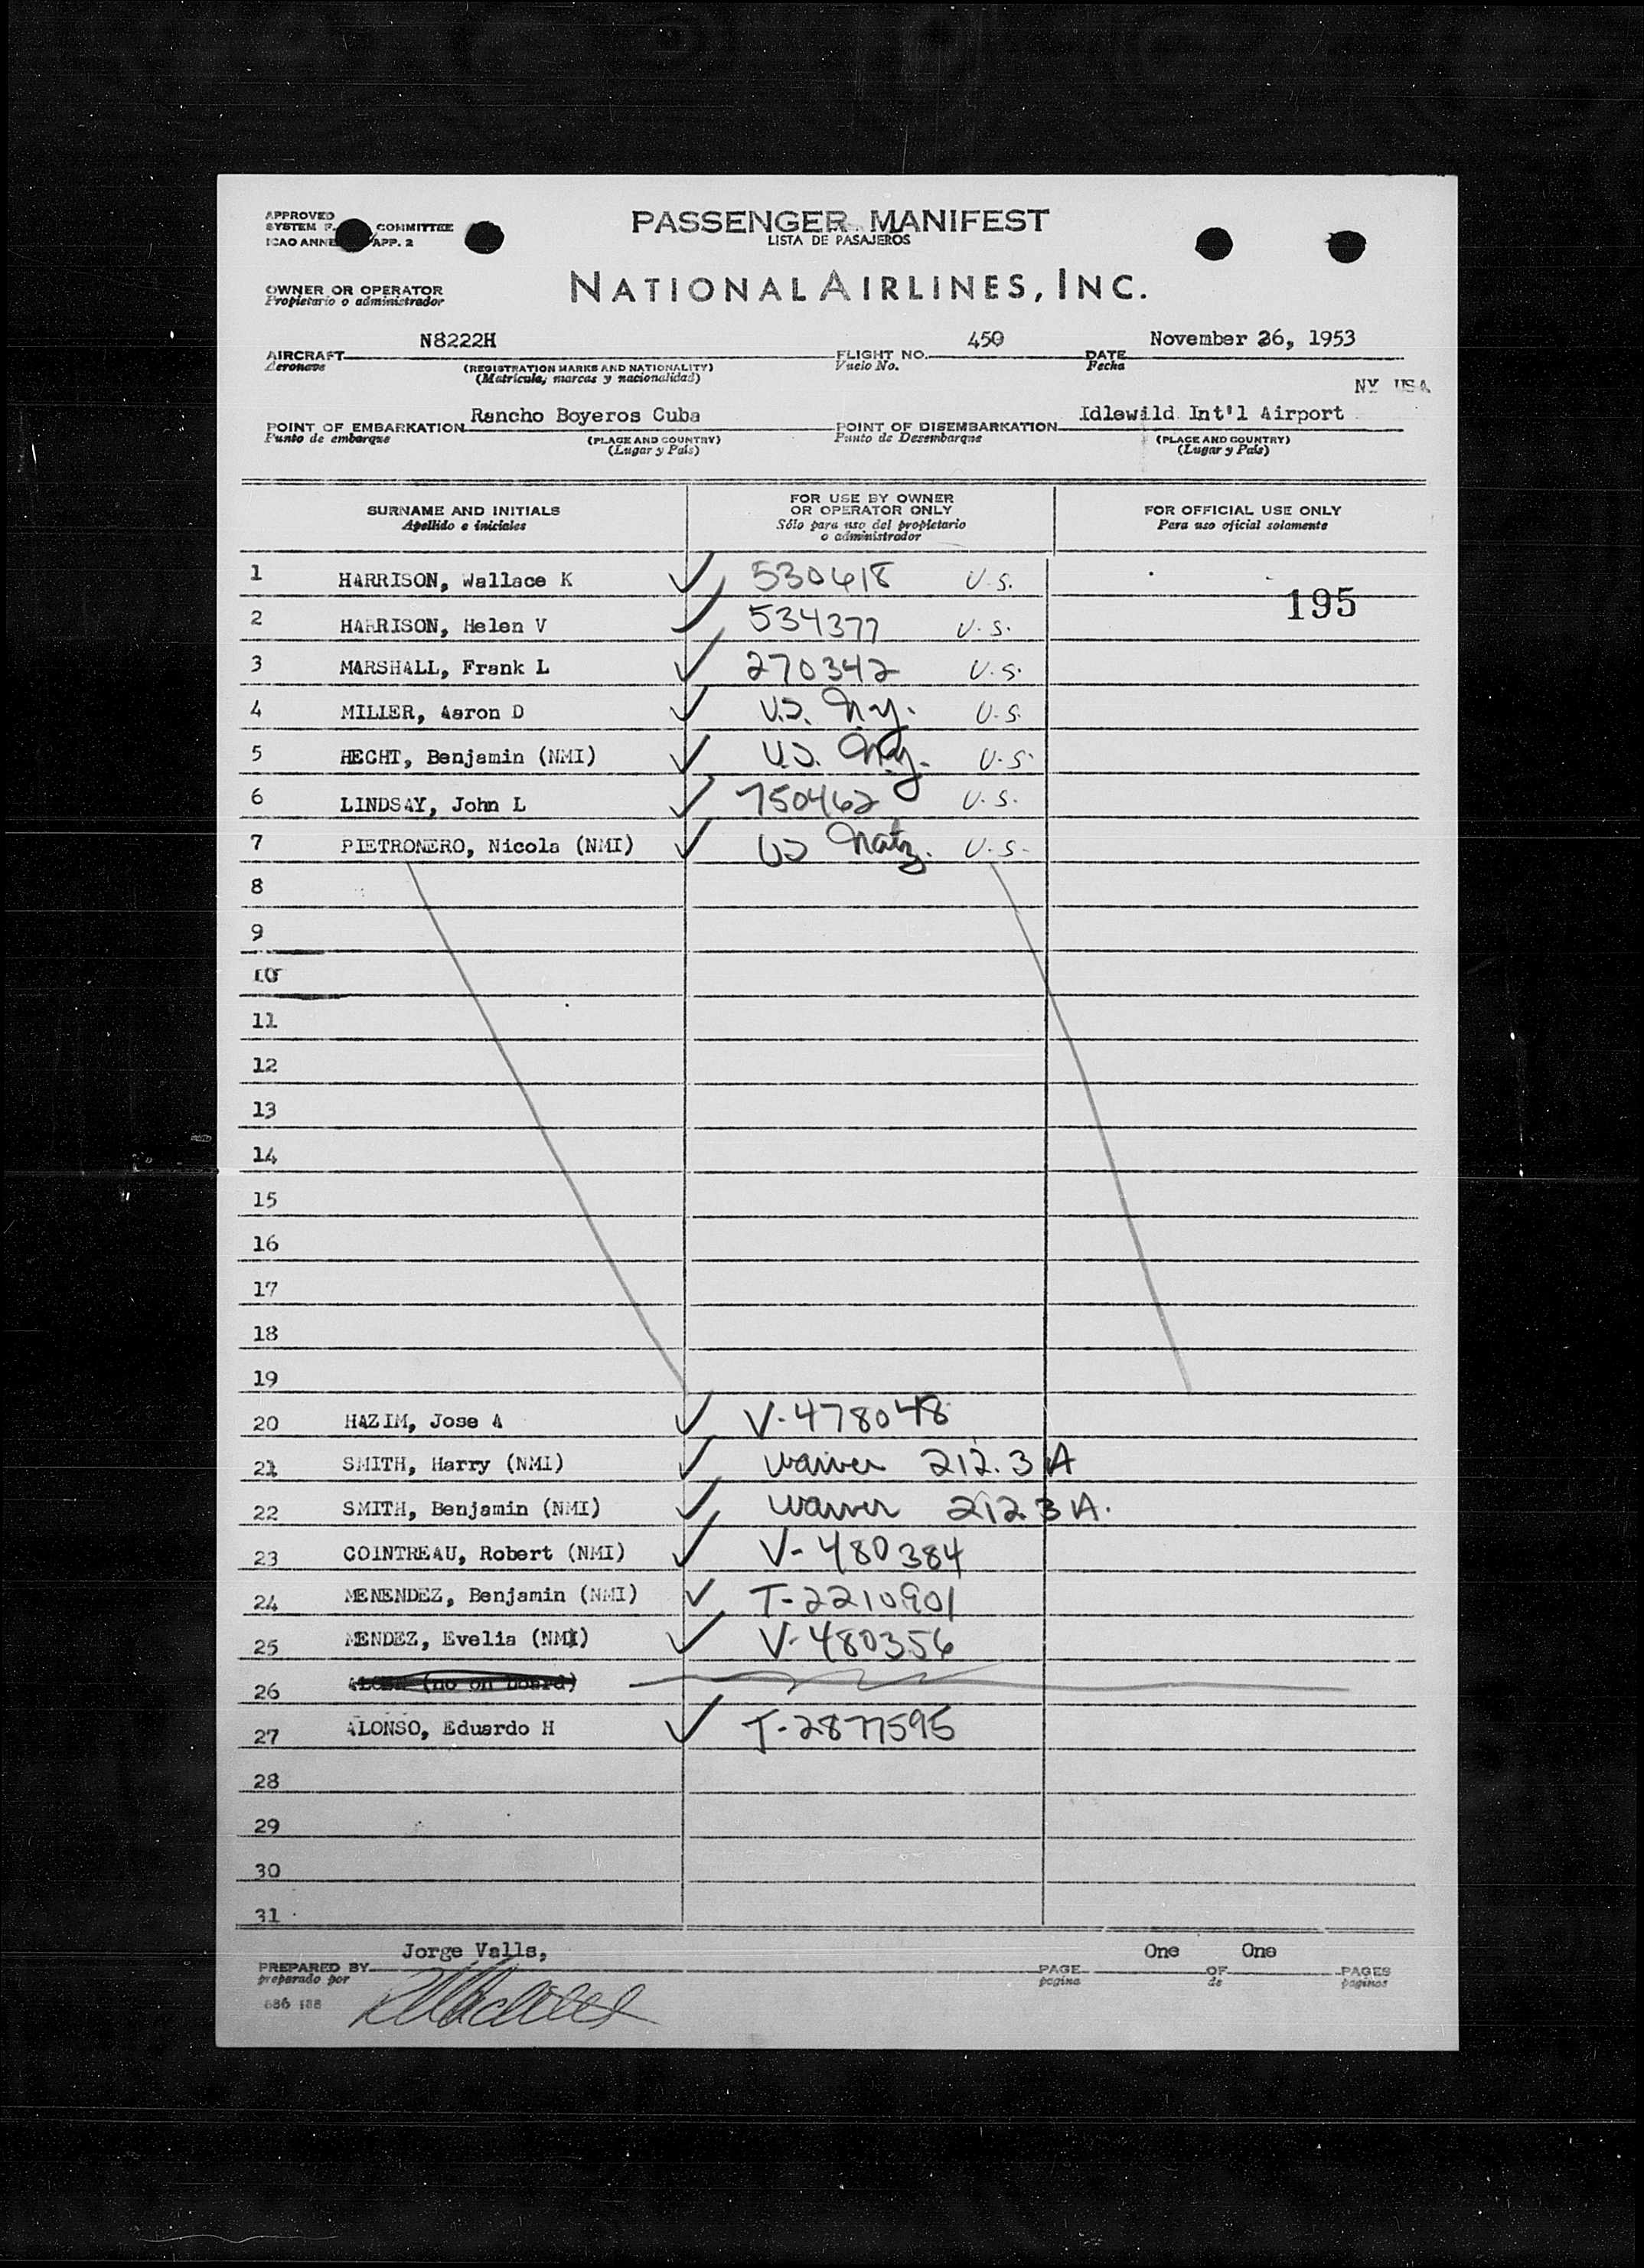 APPROVED
SYSTEM F. COMMITTEE
ICAO ANNE APP. 2
PASSENGER MANIFEST
LISTA DE PASAJEROS
OWNER OR OPERATOR
Propietario o administrador
NATIONAL AIRLINES, INC.
AIRCRAFT N8222H FLIGHT NO. 450 DATE November 26, 1953
Aeronave (REGISTRATION MARKS AND NATIONALITY) Vuelo No. Fecha
(Matricula, marcas y nacionalidad)
NY USA
POINT OF EMBARKATION Rancho Boyeros Cuba POINT OF DISEMBARKATION Idlewild Int'l Airport
Punto de embarque (PLACE AND COUNTRY) Punto de Desembarque (PLACE AND COUNTRY)
(Lugar y País) (Lugar y País)
SURNAME AND INITIALS
Apellido e iniciales
FOR USE BY OWNER
OR OPERATOR ONLY
Sólo para uso del propietario
o administrador
FOR OFFICIAL USE ONLY
Para uso oficial solamente
1 HARRISON, Wallace K ✓ 530618 U.S.
195
2 HARRISON, Helen V ✓ 534377 U.S.
3 MARSHALL, Frank L ✓ 270342 U.S.
4 MILLER, Aaron D ✓ U.S. N.Y. U.S.
5 HECHT, Benjamin (NMI) ✓ U.S. N.Y. U.S.
6 LINDSAY, John L ✓ 750462 U.S.
7 PIETRONERO, Nicola (NMI) ✓ US Natz. U.S.
8
9
10
11
12
13
14
15
16
17
18
19
20 HAZIM, Jose A ✓ V-478048
21 SMITH, Harry (NMI) ✓ waiver 212.3 A
22 SMITH, Benjamin (NMI) ✓ waiver 212.3 A.
23 COINTREAU, Robert (NMI) ✓ V-480384
24 MENENDEZ, Benjamin (NMI) ✓ T-2210901
25 MENDEZ, Evelia (NMI) ✓ V-480356
26 (no on board)
27 ALONSO, Eduardo H ✓ T-2877595
28
29
30
31
PREPARED BY Jorge Valls, PAGE One OF One PAGES
preparado por pagina de paginas